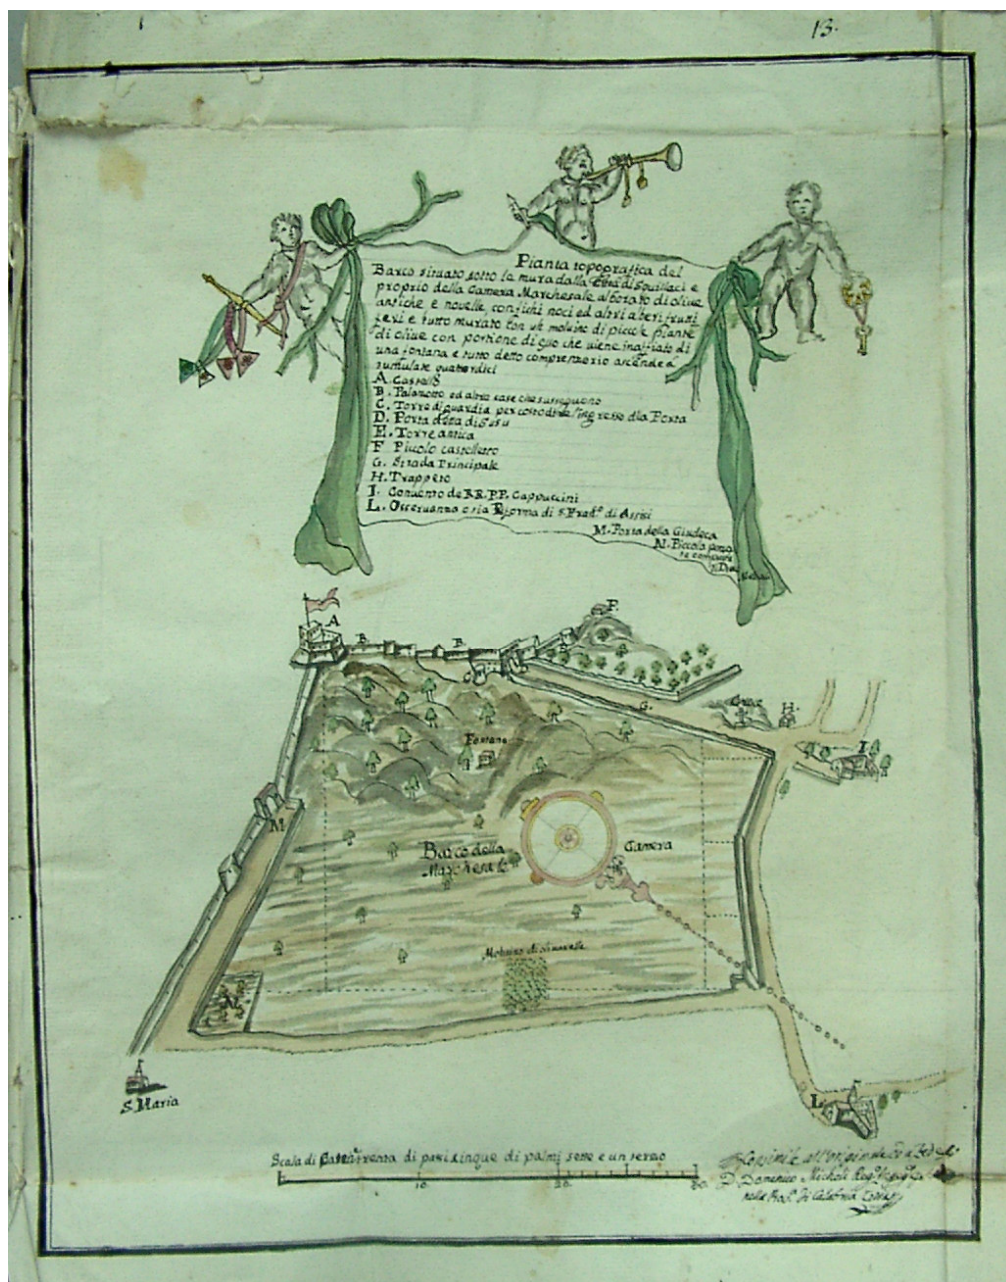 13.
Pianta topografica del
Barco situato sotto le mura dalla Città di Squillaci e
proprio della Camera Marchesale alborato di olive
antiche e novelle, con fichi noci ed altri alberi frutti
feri e tutto murato con un molino di piccole piante
di olive con portione di gso che viene inaffiato di
una fontana e tutto detto comprensorio ascende a
tumulate quattordici
A. Castello
B. Palazzotto ed altre case che susseguono
C. Torre di guardia per custodire l'ingresso alla Porta
D. Porta detta di Susu
E. Torre antica
F Piccolo castelletto
G. Strada Principale
H. Trappeto
I. Convento de RR. PP. Cappuccini
L. Osservanza o sia Riforma di S. Frad.o di Assisi
M. Porta della Giudeca
N. Piccola
A
B.
B.
F.
G.
H.
I.
Fontana
M
Barco della
Marchesale
Camera
N.
L
S. Maria
Scala di di passi cinque di palmi sette e un terzo
10. 20. 30.
D. Domenico Micheli
nella Prov. di Calabria